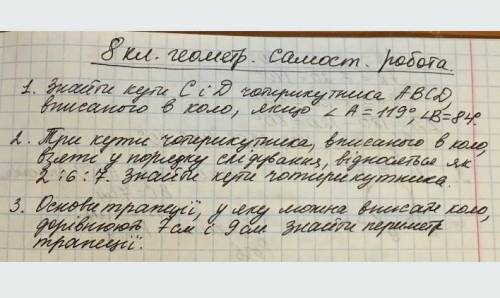 8 кл. геометр. самост. робота.
1. Знайти кути С і D чотирикутника ABCD,
вписаного в коло, якщо ∠A = 119°, ∠B=84°.
2. Три кути чотирикутника, вписаного в коло,
взяті у порядку слідування, відносяться як
2:6:7. Знайти кути чотирикутника.
3. Основи трапеції, у яку можна вписати коло,
дорівнюють 7см і 9см. Знайти периметр
трапеції.